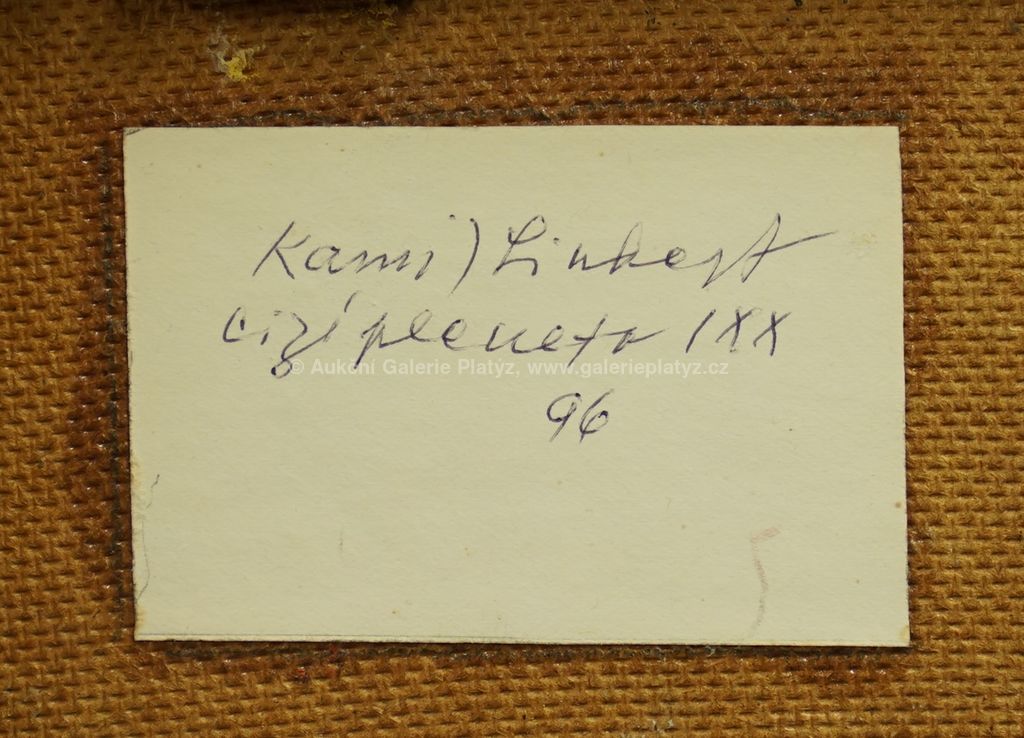 Kamil Linhart
cizí planeta IXX
© Aukční Galerie Platýz, www.galerieplatyz.cz
96
5